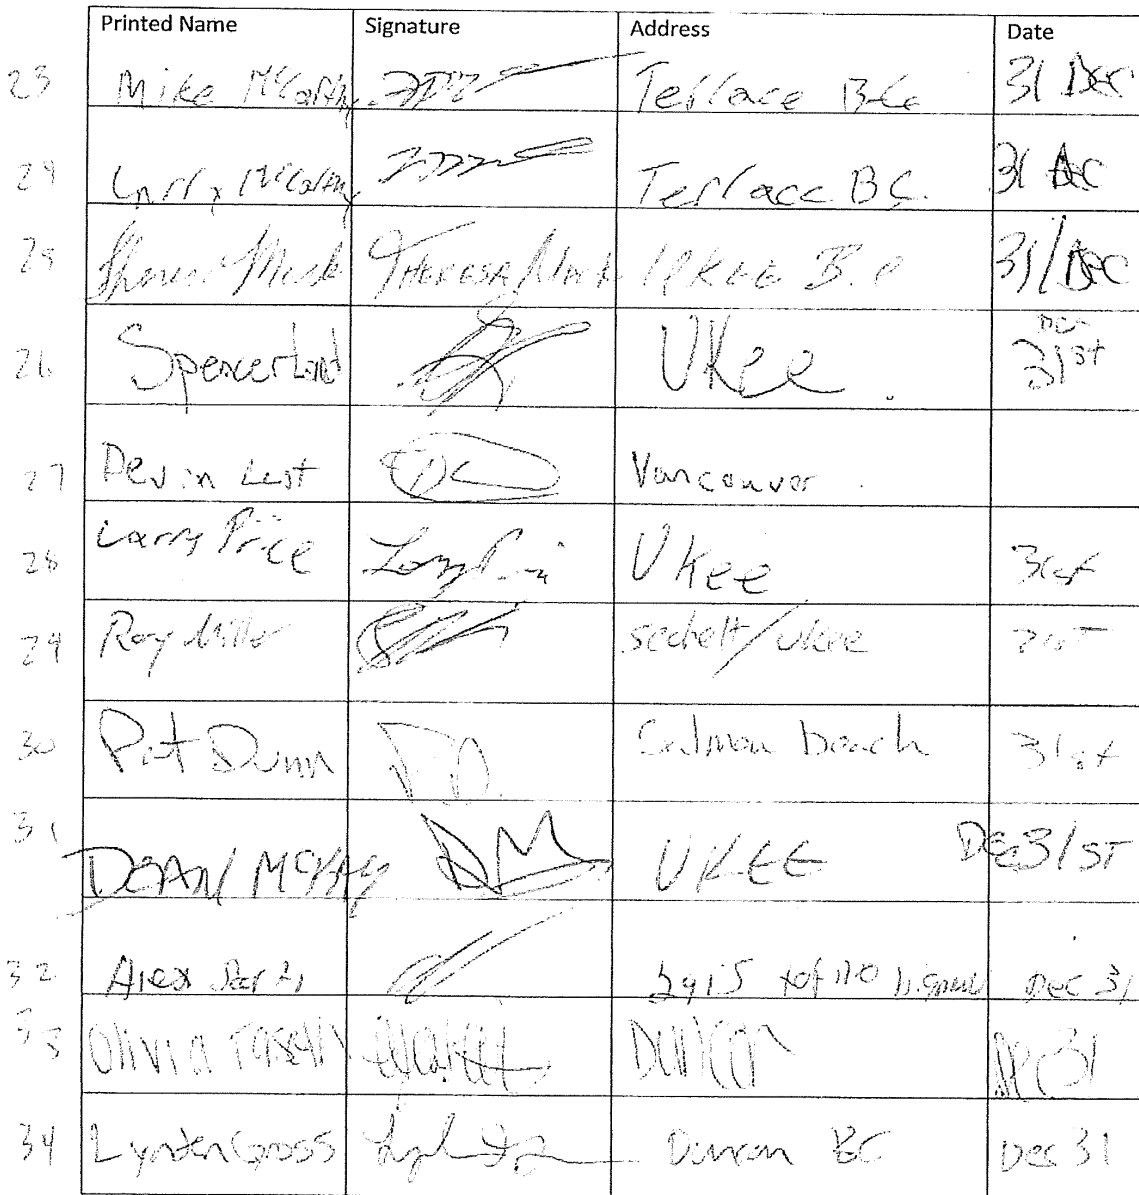 Printed Name Signature Address Date
23 Mike McCarthy Terrace B.C. 31 Dec
24 Larry McCarthy Terrace B.C. 31 Dec
25 Theresa Mack THERESA Mack UKEE B.C 31/Dec
26 Spencer Land UKee Dec 31st
27 Devin Lest Vancouver
28 Larry Price Ukee 31st
29 Roy Miller sechelt/ukee 31st
30 Pat Dunn Salmon beach 31st
31 DEAN McKay DM UKEE Dec 31ST
32 Alex 2915 Dec 31
33 Olivia Duncan Dec 31
34 Lynden Gross Duncan BC Dec 31